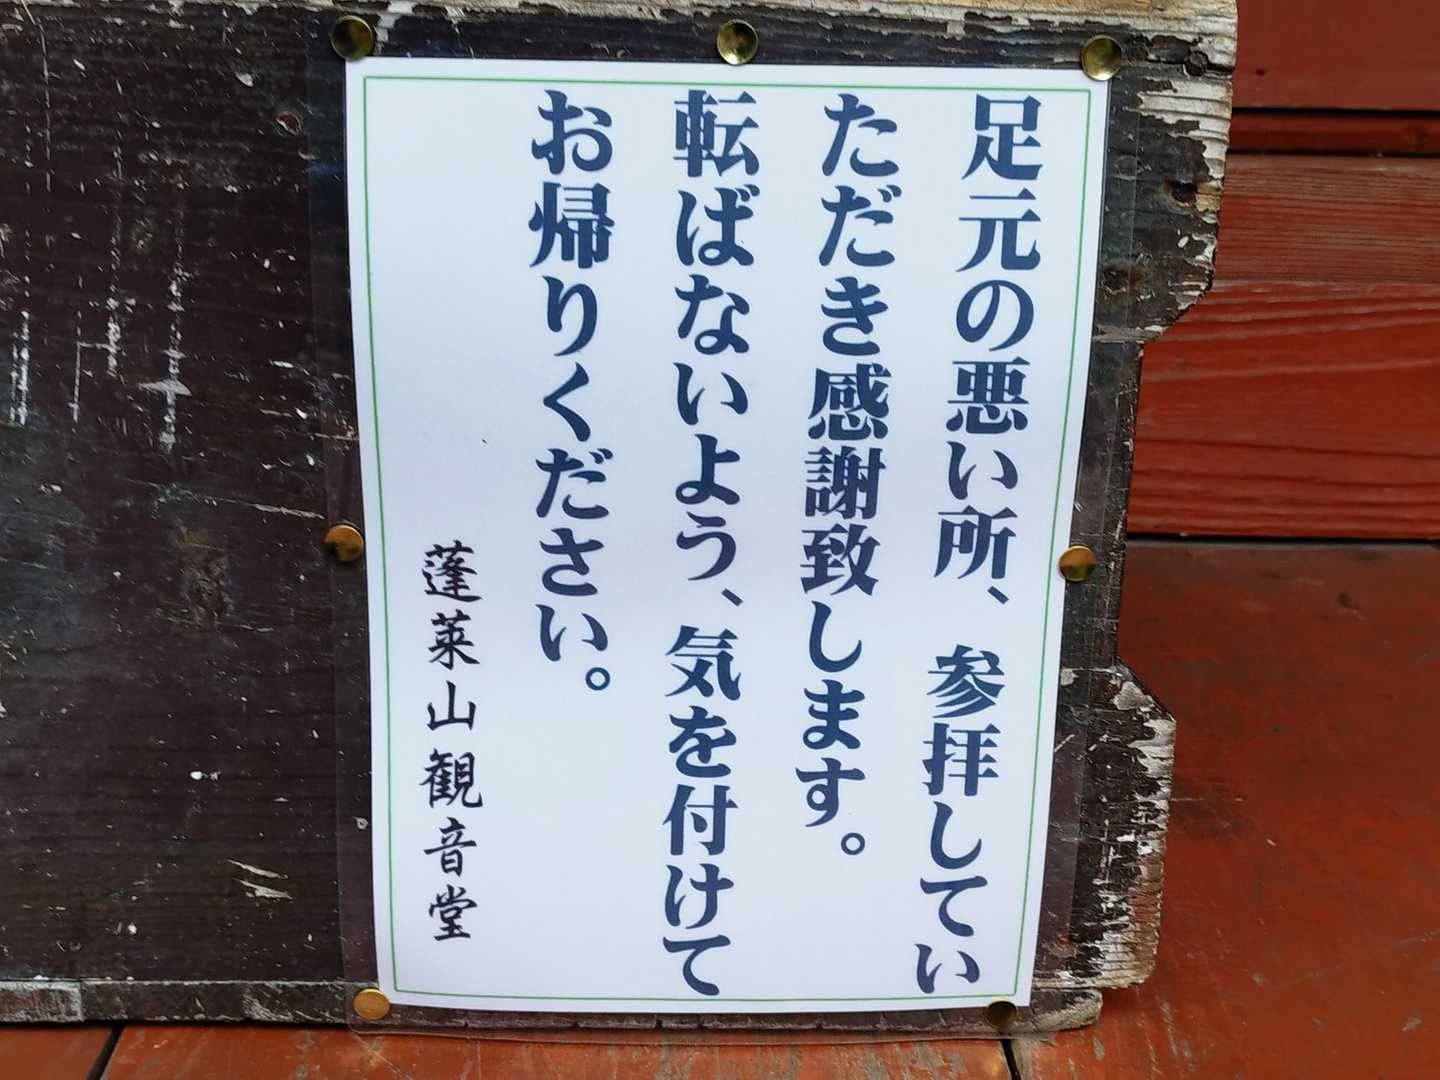 足元の悪い所、参拝してい
ただき感謝致します。
転ばないよう、気を付けて
お帰りください。
蓬莱山観音堂